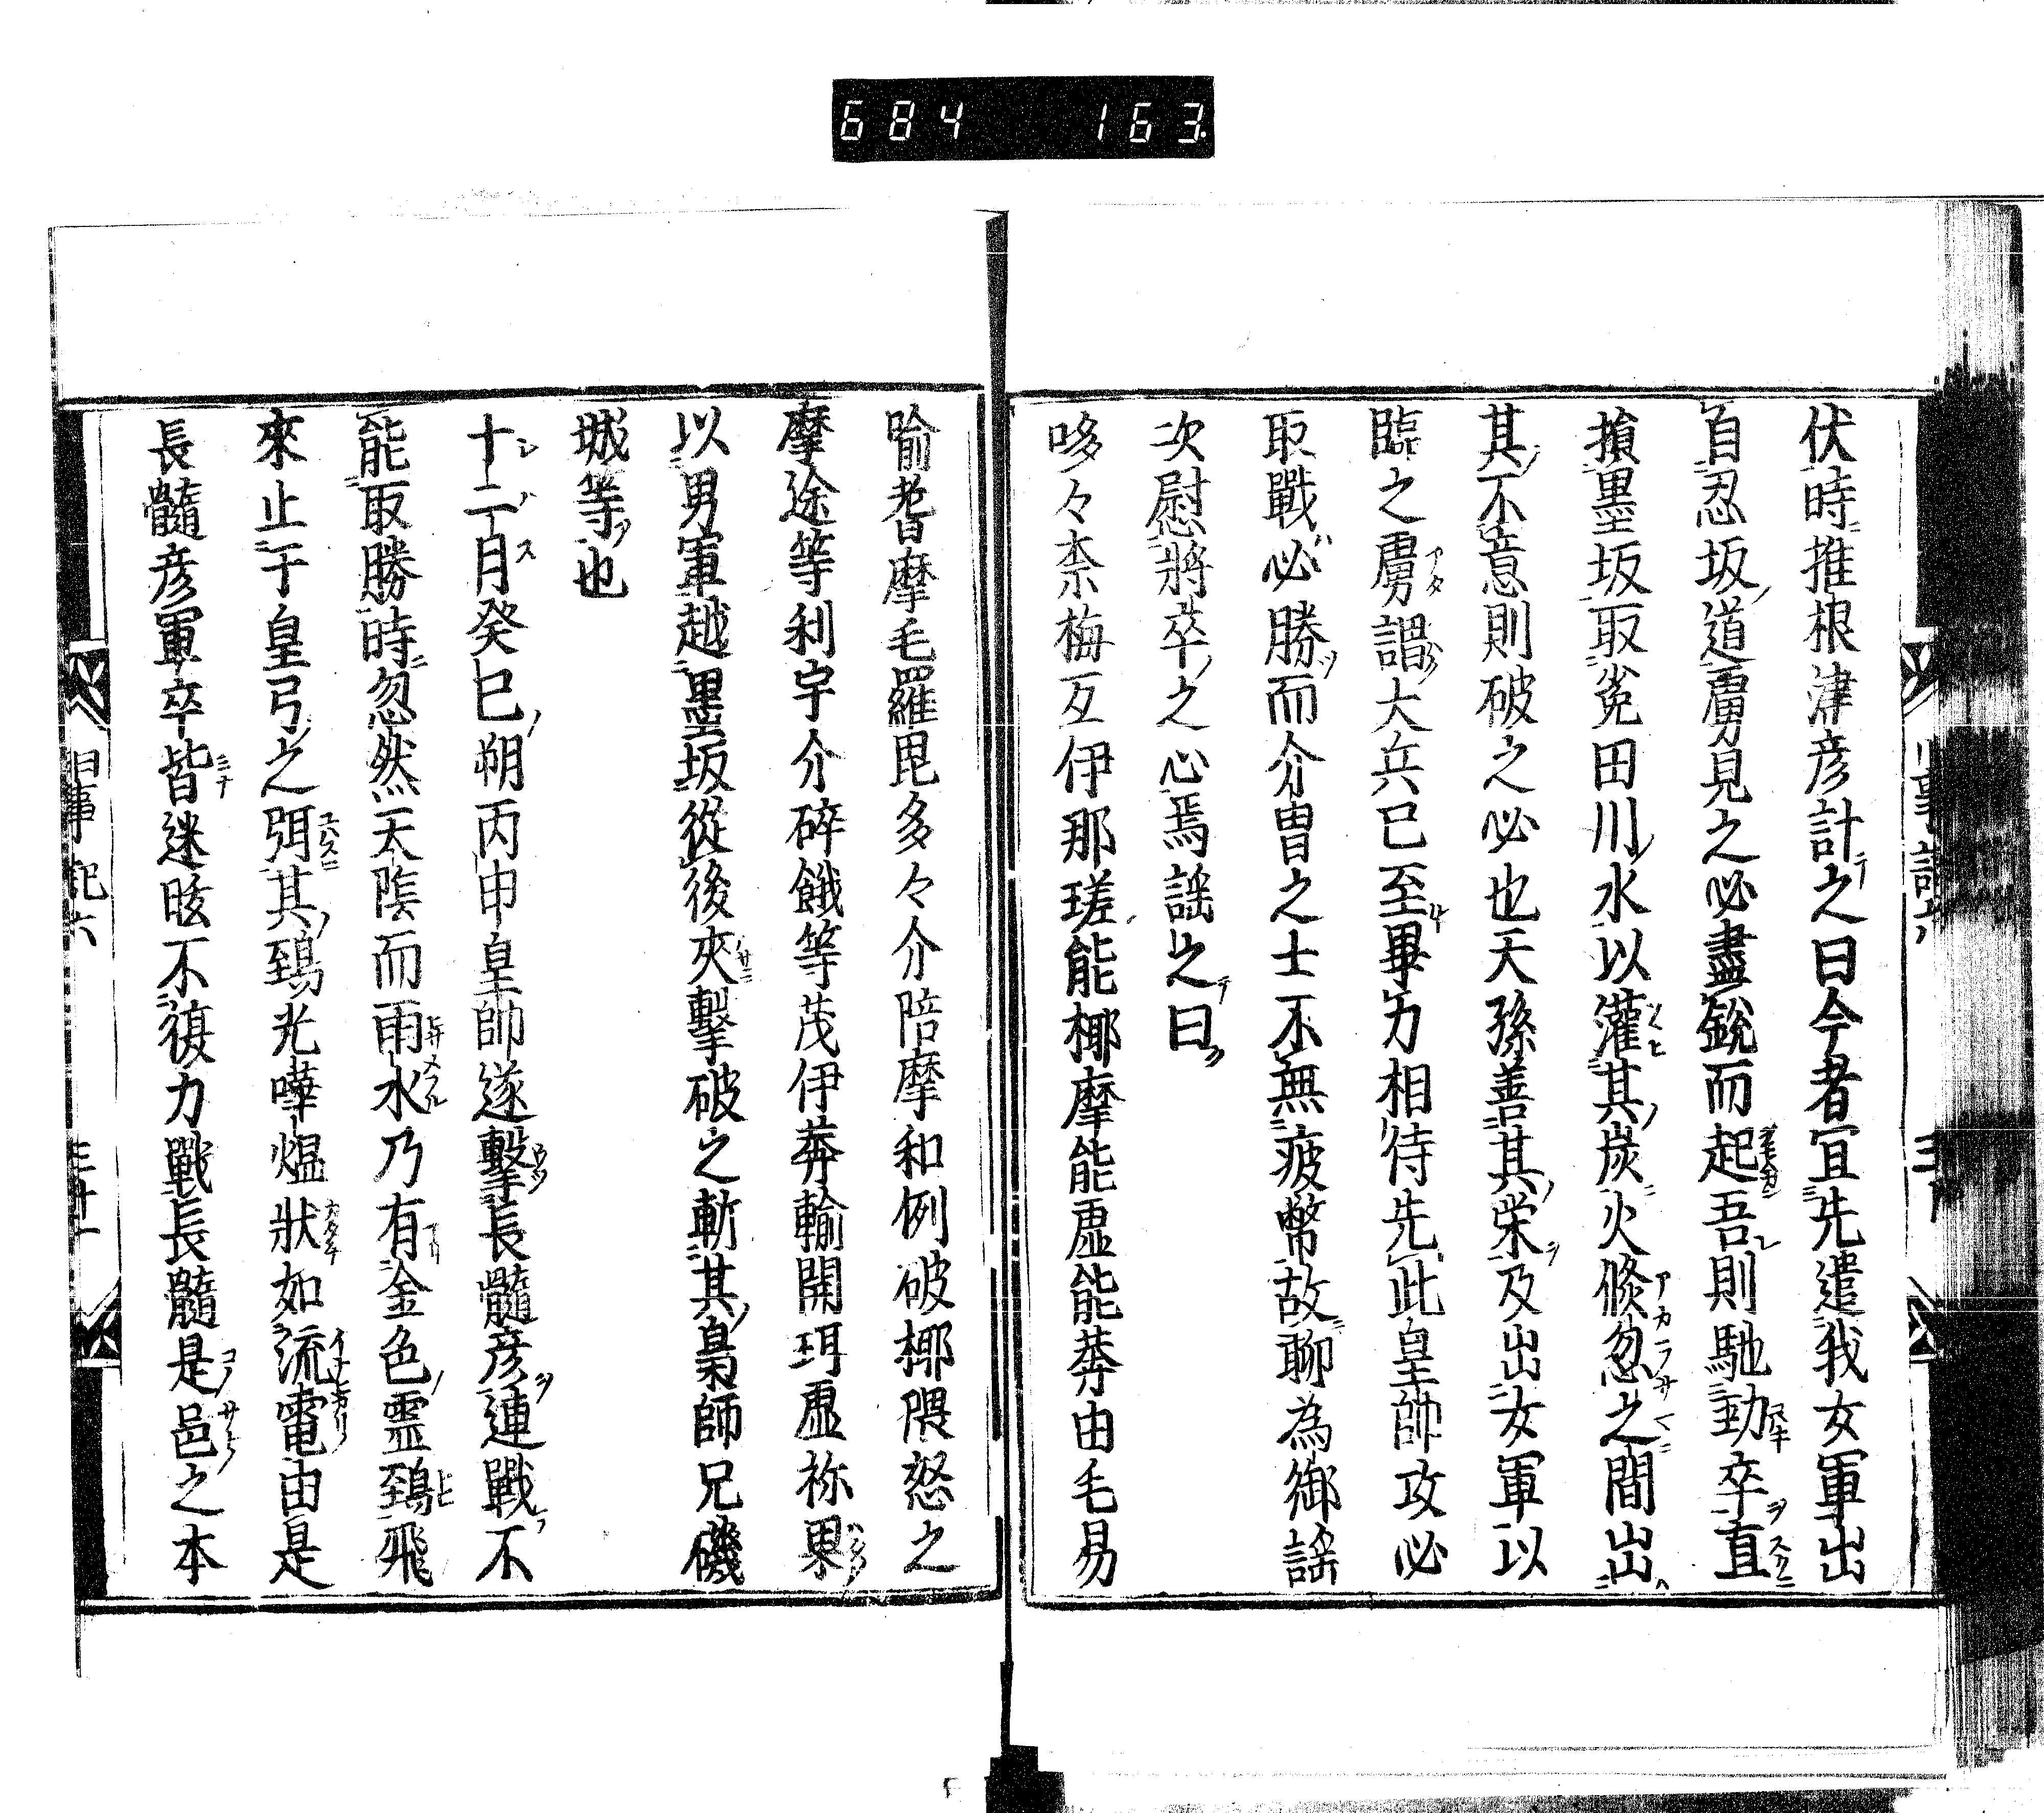 684 163.
伏時推根津彦計之曰今者宜先遣我女軍出
自忍坂道虜見之必盡銳而起吾則馳勁卒直
損墨坂取菟田川水以灌其炭火倏忽之間出
其不意則破之必也天孫善其策及出女軍以
臨之虜謂大兵已至畢力相待先此皇帥攻必
取戰必勝而介冑之士不無疲弊故聊為御謡
次慰將卒之心焉謡之曰
哆々奈梅亙伊那瑳能椰摩能虛能莽由毛易
喻耆摩毛羅毘多々介陪摩和例破椰隈怒之
摩途等利宇介碎餓等茂伊莽輸開珥虛祢果
以男軍越墨坂從後夾擊破之斬其梟師兄磯
城等也
十二月癸巳朔丙申皇帥遂擊長髓彦連戰不
能取勝時忽然天陰而雨水乃有金色霊鵄飛
來止于皇弓之弭其鵄光曄煜狀如流電由是
長髓彦軍卒皆迷眩不復力戰長髓是邑之本
旧事記六 三十一